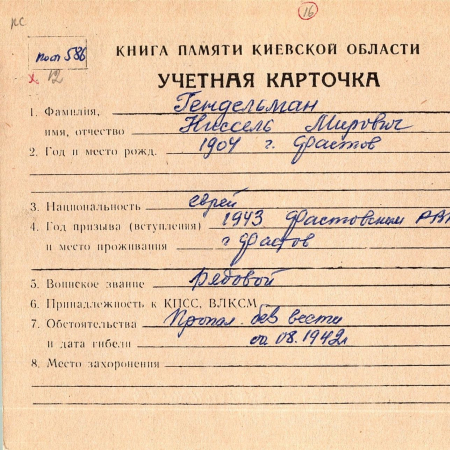 рс
16
пост 586
х 12
КНИГА ПАМЯТИ КИЕВСКОЙ ОБЛАСТИ
УЧЕТНАЯ КАРТОЧКА
1. Фамилия, Гендельман
имя, отчество Ниссель Мирович
2. Год и место рожд. 1904 г. Фастов
3. Национальность еврей
4. Год призыва (вступления) 1943 Фастовским РВК
и место проживания г Фастов
5. Воинское звание Рядовой
6. Принадлежность к КПСС, ВЛКСМ
7. Обстоятельства Пропал без вести
и дата гибели 08.1942г
8. Место захоронения